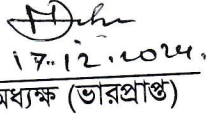 17.12.2024.
অধ্যক্ষ (ভারপ্রাপ্ত)